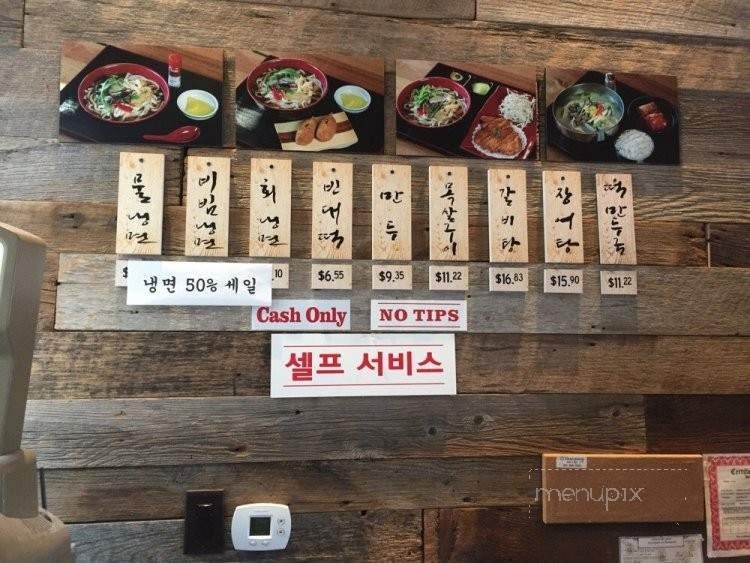 물냉면
비빔냉면
회냉면
빈대떡
만두
목살구이
갈비탕
장어탕
떡만두국
$
.10
$6.55
$9.35
$11.22
$16.83
$15.90
$11.22
냉면 50% 세일
Cash Only
NO TIPS
셀프 서비스
menupix